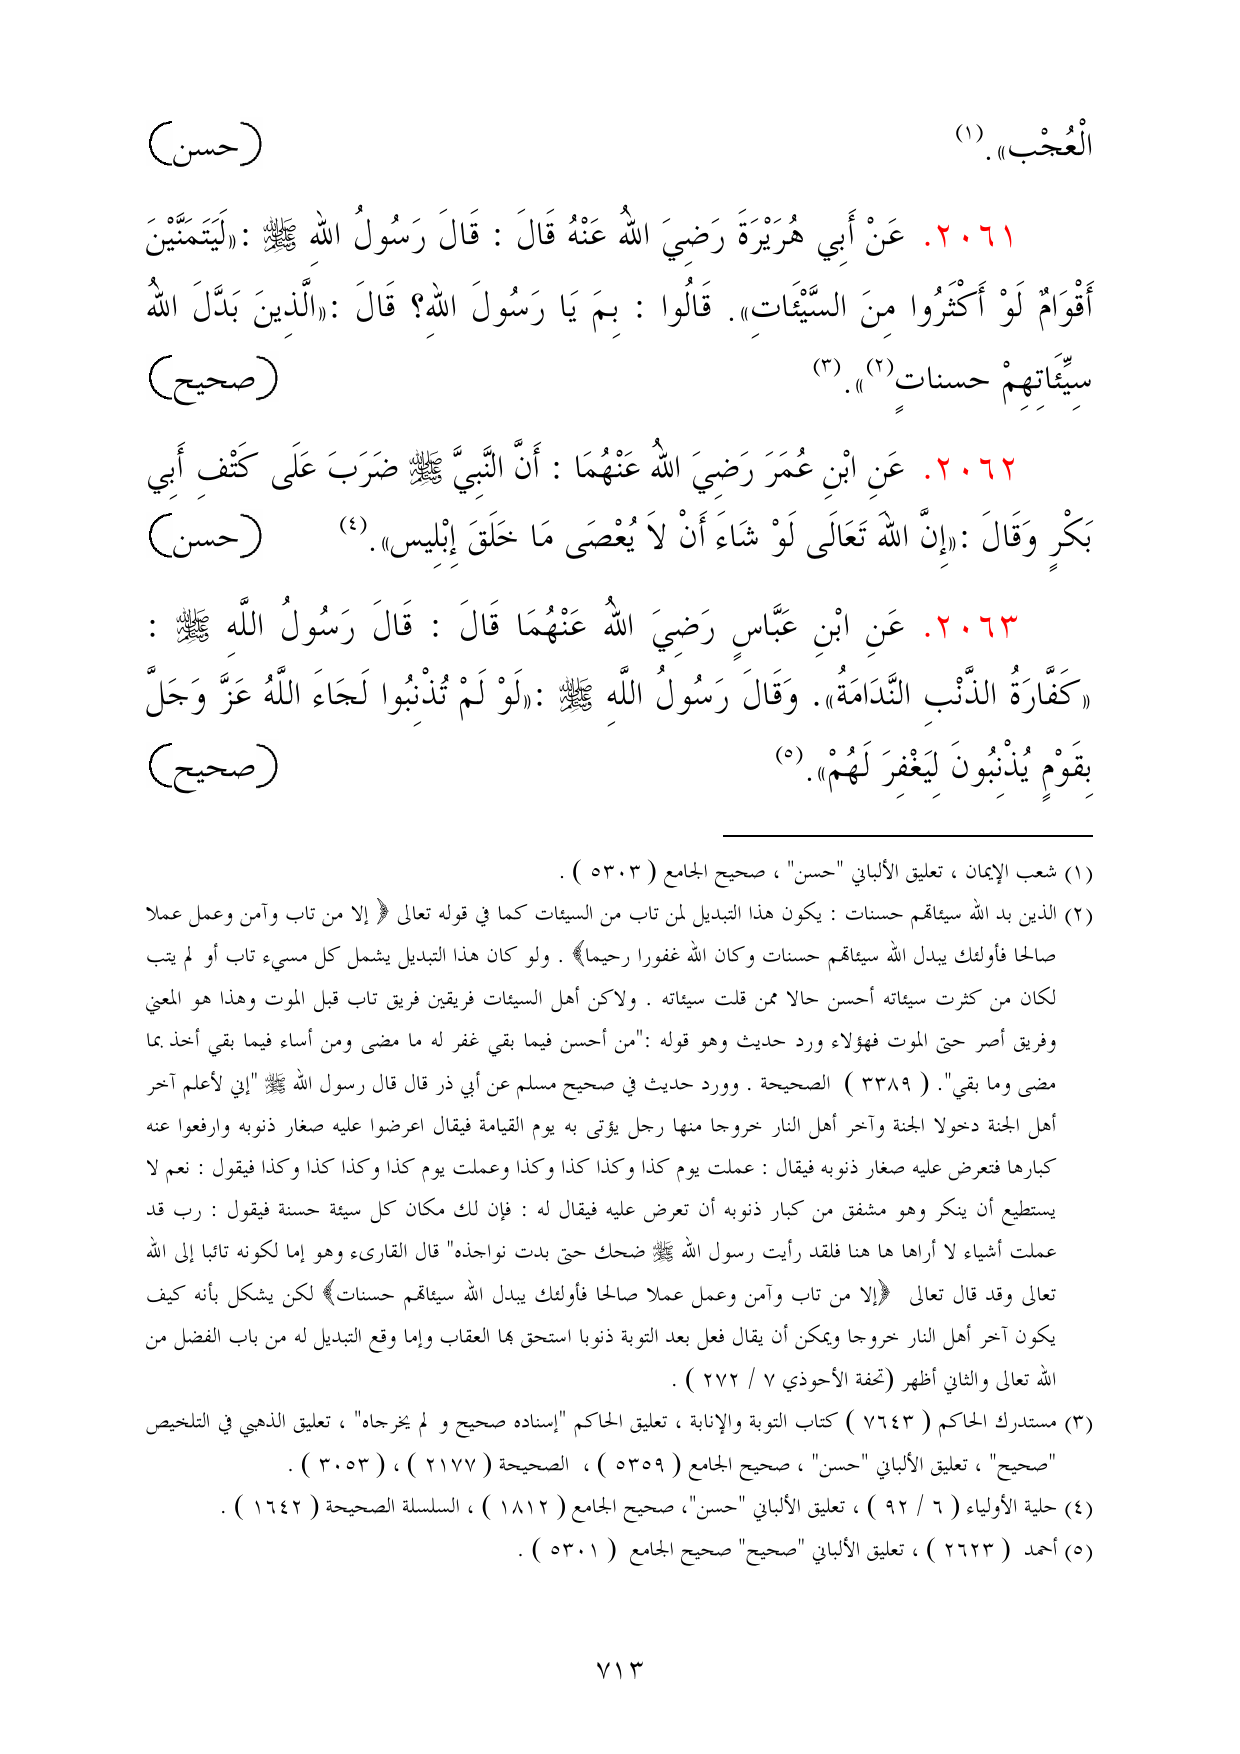 الْعُجْب».(١) (حسن)
٢٠٦١. عَنْ أَبِي هُرَيْرَةَ رَضِيَ اللهُ عَنْهُ قَالَ : قَالَ رَسُولُ اللهِ ﷺ :«لَيَتَمَنَّيْنَ
أَقْوَامٌ لَوْ أَكْثَرُوا مِنَ السَّيِّئَاتِ». قَالُوا : بِمَ يَا رَسُولَ اللهِ؟ قَالَ :«الَّذِينَ بَدَّلَ اللهُ
سيِّئَاتِهِمْ حسناتٍ(٢)».(٣) (صحيح)
٢٠٦٢. عَنِ ابْنِ عُمَرَ رَضِيَ اللهُ عَنْهُمَا : أَنَّ النَّبِيَّ ﷺ ضَرَبَ عَلَى كَتْفِ أَبِي
بَكْرٍ وَقَالَ :«إِنَّ اللهَ تَعَالَى لَوْ شَاءَ أَنْ لاَ يُعْصَى مَا خَلَقَ إِبْلِيس».(٤) (حسن)
٢٠٦٣. عَنِ ابْنِ عَبَّاسٍ رَضِيَ اللهُ عَنْهُمَا قَالَ : قَالَ رَسُولُ اللَّهِ ﷺ :
«كَفَّارَةُ الذَّنْبِ النَّدَامَةُ». وَقَالَ رَسُولُ اللَّهِ ﷺ :«لَوْ لَمْ تُذْنِبُوا لَجَاءَ اللَّهُ عَزَّ وَجَلَّ
بِقَوْمٍ يُذْنِبُونَ لِيَغْفِرَ لَهُمْ».(٥) (صحيح)
(١) شعب الإيمان ، تعليق الألباني "حسن" ، صحيح الجامع ( ٥٣٠٣ ) .
(٢) الذين بد الله سيئاتهم حسنات : يكون هذا التبديل لمن تاب من السيئات كما في قوله تعالى ﴿ إلا من تاب وآمن وعمل عملا
صالحا فأولئك يبدل الله سيئاتهم حسنات وكان الله غفورا رحيما﴾ . ولو كان هذا التبديل يشمل كل مسيء تاب أو لم يتب
لكان من كثرت سيئاته أحسن حالا ممن قلت سيئاته . ولاكن أهل السيئات فريقين فريق تاب قبل الموت وهذا هو المعني
وفريق أصر حتى الموت فهؤلاء ورد حديث وهو قوله :"من أحسن فيما بقي غفر له ما مضى ومن أساء فيما بقي أخذ بما
مضى وما بقي". ( ٣٣٨٩ ) الصحيحة . وورد حديث في صحيح مسلم عن أبي ذر قال قال رسول الله ﷺ "إني لأعلم آخر
أهل الجنة دخولا الجنة وآخر أهل النار خروجا منها رجل يؤتى به يوم القيامة فيقال اعرضوا عليه صغار ذنوبه وارفعوا عنه
كبارها فتعرض عليه صغار ذنوبه فيقال : عملت يوم كذا وكذا كذا وكذا وعملت يوم كذا وكذا كذا وكذا فيقول : نعم لا
يستطيع أن ينكر وهو مشفق من كبار ذنوبه أن تعرض عليه فيقال له : فإن لك مكان كل سيئة حسنة فيقول : رب قد
عملت أشياء لا أراها ها هنا فلقد رأيت رسول الله ﷺ ضحك حتى بدت نواجذه" قال القارىء وهو إما لكونه تائبا إلى الله
تعالى وقد قال تعالى ﴿إلا من تاب وآمن وعمل عملا صالحا فأولئك يبدل الله سيئاتهم حسنات﴾ لكن يشكل بأنه كيف
يكون آخر أهل النار خروجا ويمكن أن يقال فعل بعد التوبة ذنوبا استحق بها العقاب وإما وقع التبديل له من باب الفضل من
الله تعالى والثاني أظهر (تحفة الأحوذي ٧ / ٢٧٢ ) .
(٣) مستدرك الحاكم ( ٧٦٤٣ ) كتاب التوبة والإنابة ، تعليق الحاكم "إسناده صحيح و لم يخرجاه" ، تعليق الذهبي في التلخيص
"صحيح" ، تعليق الألباني "حسن" ، صحيح الجامع ( ٥٣٥٩ ) ، الصحيحة ( ٢١٧٧ ) ، ( ٣٠٥٣ ) .
(٤) حلية الأولياء ( ٦ / ٩٢ ) ، تعليق الألباني "حسن"، صحيح الجامع ( ١٨١٢ ) ، السلسلة الصحيحة ( ١٦٤٢ ) .
(٥) أحمد ( ٢٦٢٣ ) ، تعليق الألباني "صحيح" صحيح الجامع ( ٥٣٠١ ) .
٧١٣